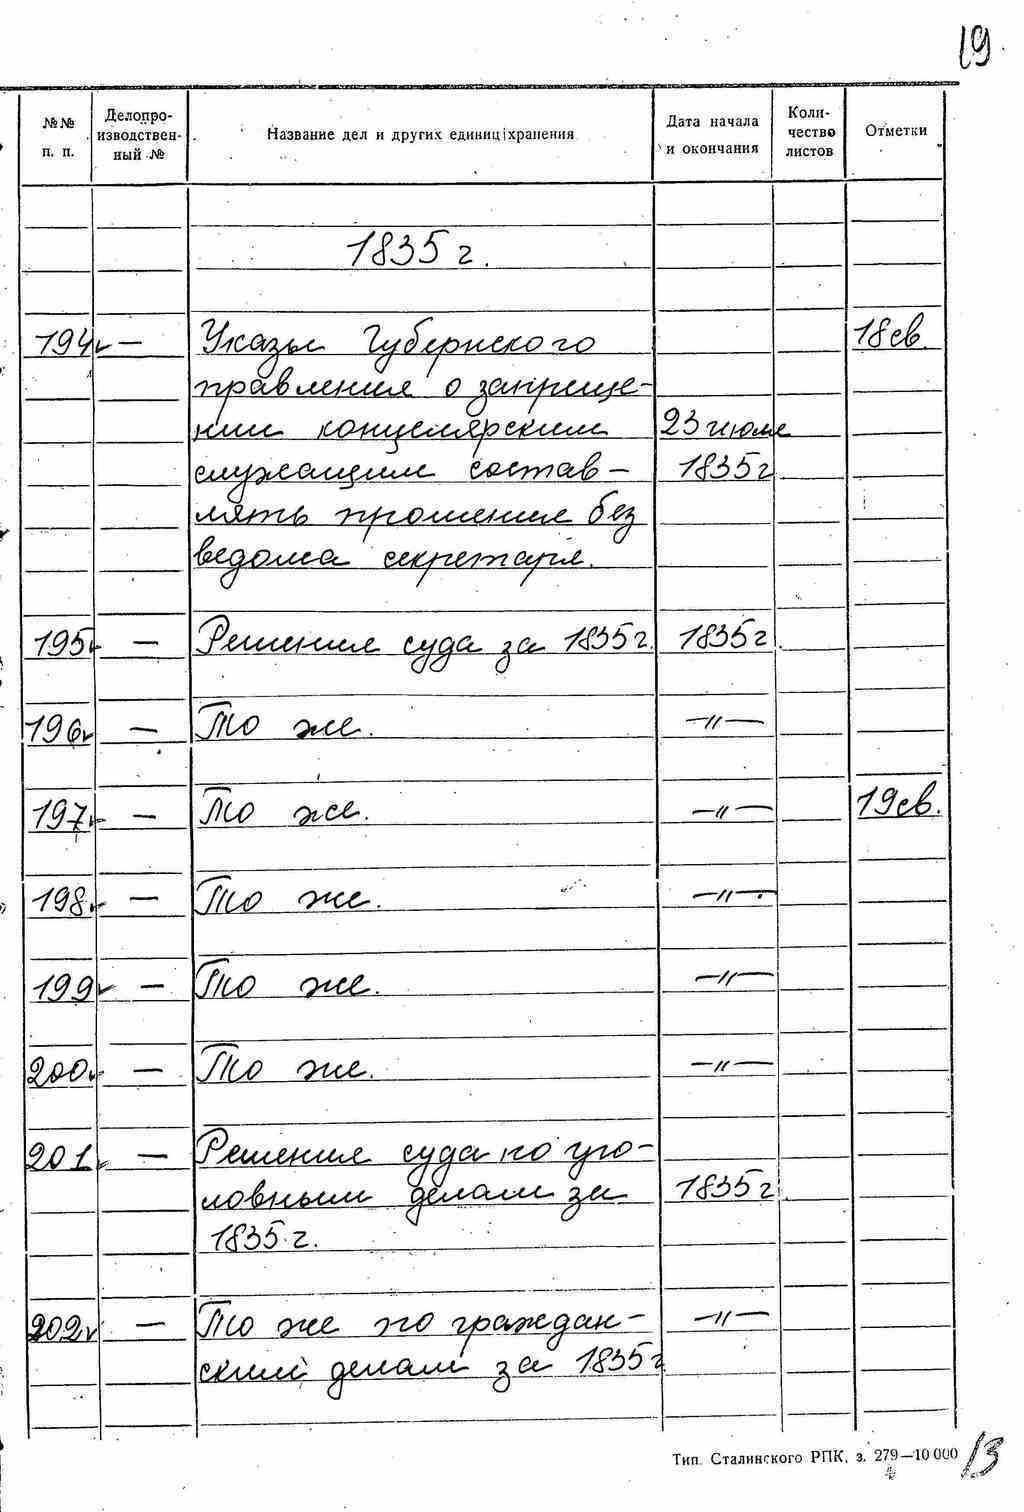 19
№№ п. п. Делопроизводственный № Название дел и других единиц хранения Дата начала и окончания Количество листов Отметки
1835 г.
194 — Указы Губернского 18 св.
правления о запреще-
нии концелярским 23 июля
служащим состав- 1835 г
лять прошения без
ведома секретаря.
195 — Решения суда за 1835 г. 1835 г
196 — То же. —"—
197 — То же. —"— 19 св.
198 — То же. —"—
199 — То же. —"—
200 — То же. —"—
201 — Решения суда по уго-
ловным делам за 1835 г
1835 г.
202 — То же по граждан- —"—
ским делам за 1835 г
Тип. Сталинского РПК, з. 279—10 000
13